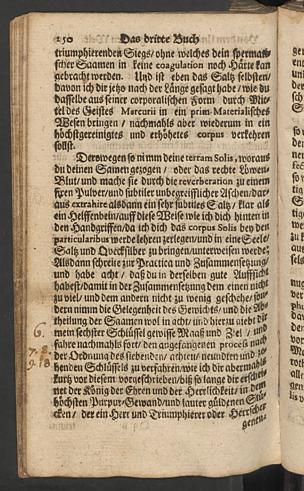 250 Das dritte Buch
triumphierenden Siegs/ ohne welches dein spermati-
scher Saamen in keine coagulation noch Härte kan
gebracht werden. Und ist eben das Saltz selbsten/
davon ich dir jetzo nach der Länge gesagt habe/ wie du
dasselbe aus seiner corporalischen Form durch Mit-
tel des Geistes Mercurii in ein prim-Materialisches
Wesen bringen/ nachmahls aber wiederum in ein
höchstgereinigtes und erhöhetes corpus verkehren
sollst.
Derowegen so nimm deine terram Solis, woraus
du deinen Saamen gezogen/ oder das rechte Löwen-
Blut/ und mache sie durch die reverberation zu einem
fixen Pulver/ und subtiler unbegreifflicher Aschen/ dar-
aus extrahire alsdann ein sehr subtiles Saltz/ klar als
ein Helffenbein/ auff diese Weise wie ich dich hinten in
den Handgriffen/ da ich dich das corpus Solis bey den
particularibus werde lehren zerlegen/ und in eine Seele/
Saltz und Quecksilber zu bringen/ unterweisen werde.
Alsdann schreite zur Practica und Zusammensetzung/
und habe acht/ daß du in derselben gute Auffsicht
habest/ damit in der Zusammensetzung dem einen nicht
zu viel/ und dem andern nicht zu wenig geschehe/ son-
dern nimm die Gelegenheit des Gewichts/ und die Ab-
theilung der Seelen wol in acht/ und hierzu giebt dir
mein sechster Schlüssel gewisse Maaß und Ziel/ und
fahre nachmahls fort/ den angefangenen process nach
der Ordnung des siebenden/ achten/ neundten und ze-
henden Schlüssels zu verfahren/ wie ich dir abermahls
kurtz vor diesem vorgeschrieben/ biß so lange dir erscheinet
der König der Ehren und der Herrlichkeit/ in dem
höchsten Purpur-Gewand/ und lauter güldenen Stü-
cken/ der ein Herr und Triumphierer oder Herrscher
genen-
6.
7. 8.
9. 10